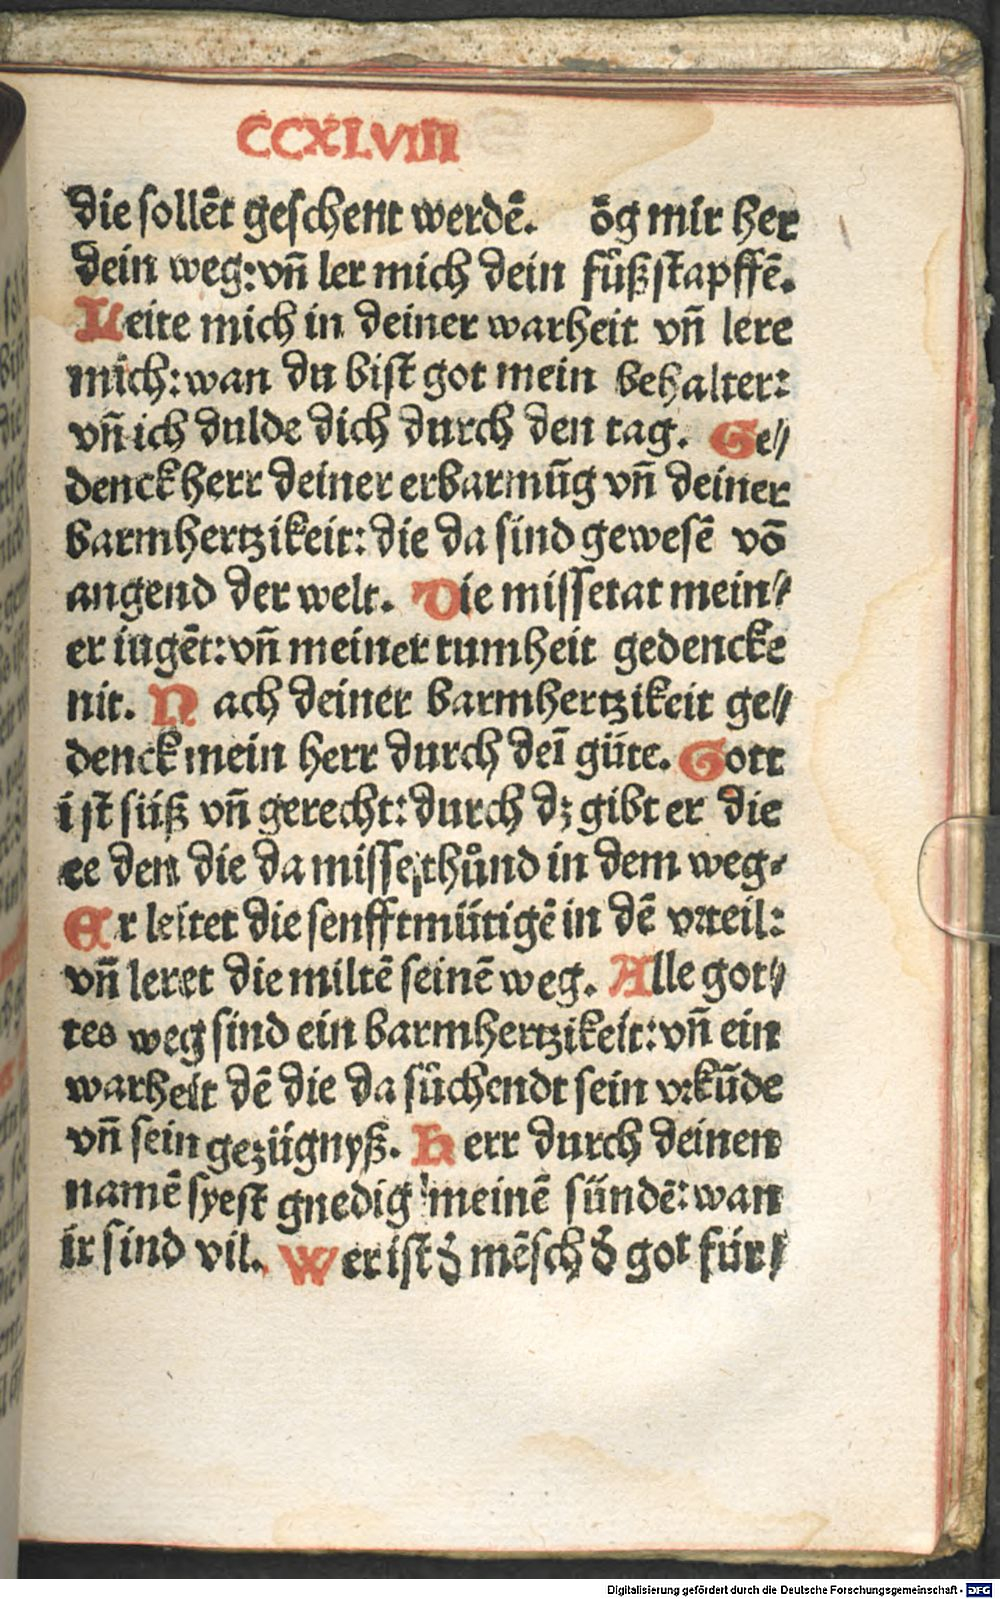 CCXLVIII
die sollēt geschent werdē. ōg mir her
dein weg: vñ ler mich dein fůßstapffē.
Leite mich in deiner warheit vñ lere
mich: wan du bist got mein behalter:
vñ ich dulde dich durch den tag. Ge⸗
denck herr deiner erbarmūg vñ deiner
barmhertzikeit: die da sind gewesē vō
angend der welt. Die missetat mein⸗
er iugēt: vñ meiner tumheit gedencke
nit. Nach deiner barmhertzikeit ge⸗
denck mein herr durch deī güte. Gott
ist süß vñ gerecht: durch dz gibt er die
ee den die da missethůnd in dem weg.
Er leitet die senfftmütigē in dē vrteil:
vñ leret die miltē seinē weg. Alle got⸗
tes weg sind ein barmhertzikeit: vñ ein
warheit dē die da sůchendt sein vrkūde
vñ sein gezügnyß. Herr durch deinen
namē syest gnedig meinē sündē: wan
ir sind vil. Wer ist d̄ mēsch d̄ got für⸗
Digitalisierung gefördert durch die Deutsche Forschungsgemeinschaft - DFG